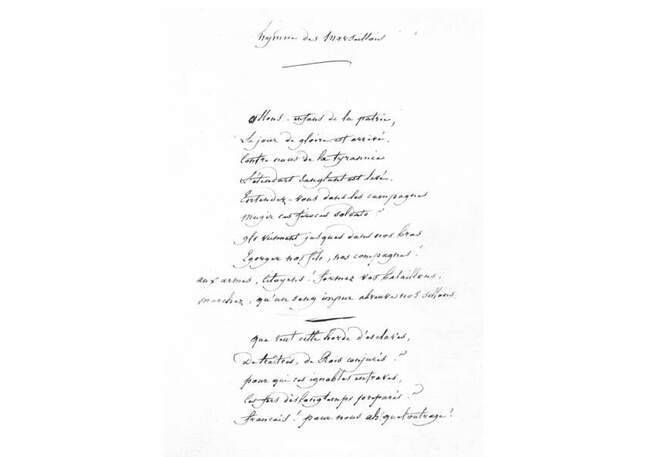 hymne des Marseillois
allons - enfans de la patrie,
Le jour de gloire est arrivé.
Contre nous de la tyrannie
L'étendart sanglant est levé.
Entendez-vous dans les campagnes
Mugir ces féroces soldats ?
Ils viennent jusques dans nos bras
Egorger nos fils, nos compagnes !
aux armes, Citoyens ! formez vos bataillons.
marchez, qu'un sang impur abreuve nos sillons.
que veut cette horde d'esclaves,
De traîtres, de Rois conjurés ?
pour qui ces ignobles entraves,
ces fers dès longtemps préparés ?
français ! pour nous ah ! quel outrage !